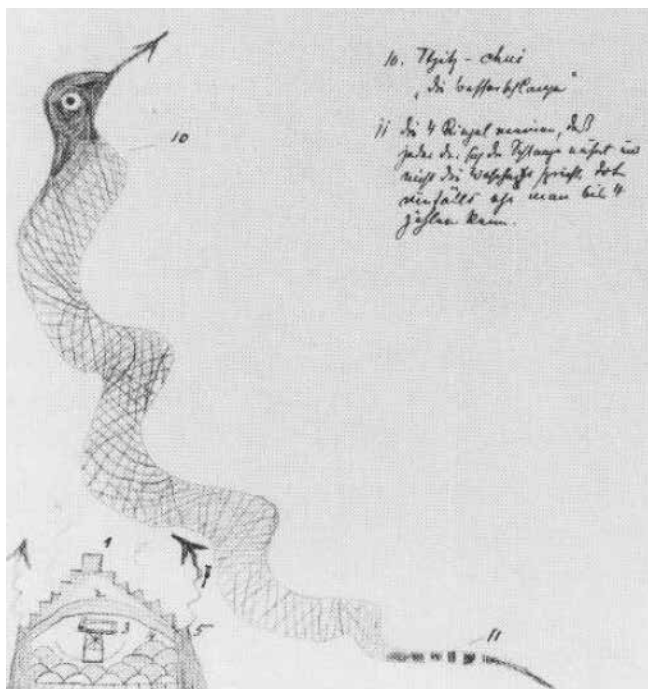 10. Tzitz - chui
„die Wasserschlange“
11 die 4 Ringel meinen, daß
jeder der sich der Schlange nähert und
nicht die Wahrheit spricht, tot
ehe man bis 4
zählen kann.
10
1
2
3
5
11